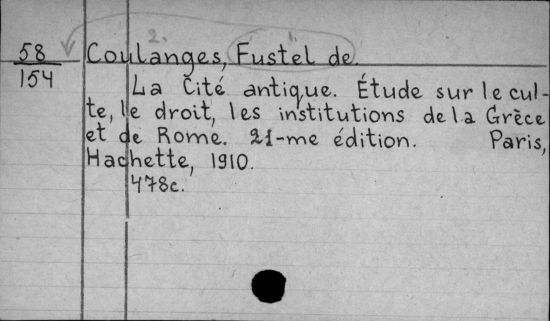 2. 1.
58 Coulanges, Fustel de.
154
La Cité antique. Étude sur le cul-
te, le droit, les institutions de la Grèce
et de Rome. 21-me édition. Paris,
Hachette, 1910.
478c.